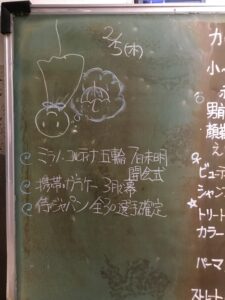 2/5(木)
ミラノ・コルティナ五輪 7日未明
開会式
携帯ガラケー 3月で幕
侍ジャパン 全30選手確定
カ
小〜
男前
顔
え
ビューテ
シャン
トリート
カラー
パーマ
ストレート